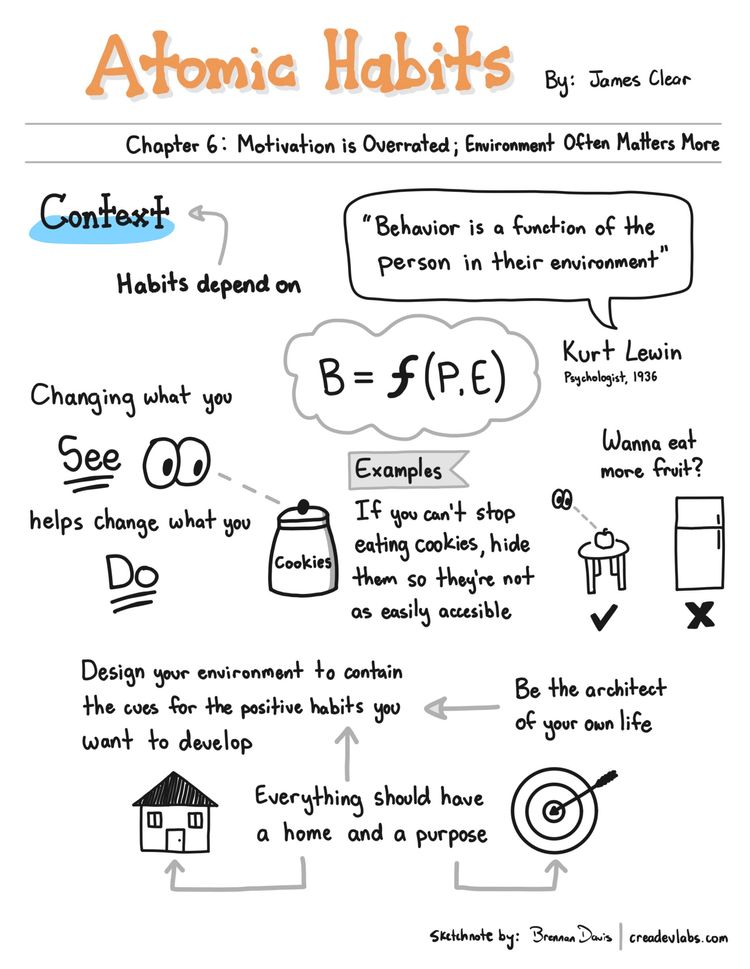 Atomic Habits
By: James Clear
Chapter 6: Motivation is Overrated; Environment Often Matters More
Context
Habits depend on
"Behavior is a function of the
person in their environment"
Kurt Lewin
Psychologist, 1936
B = f(P,E)
Changing what you
See
helps change what you
Do
Cookies
Examples
If you can't stop
eating cookies, hide
them so they're not
as easily accesible
Wanna eat
more fruit?
Design your environment to contain
the cues for the positive habits you
want to develop
Be the architect
of your own life
Everything should have
a home and a purpose
Sketchnote by: Brennan Davis | creadevlabs.com